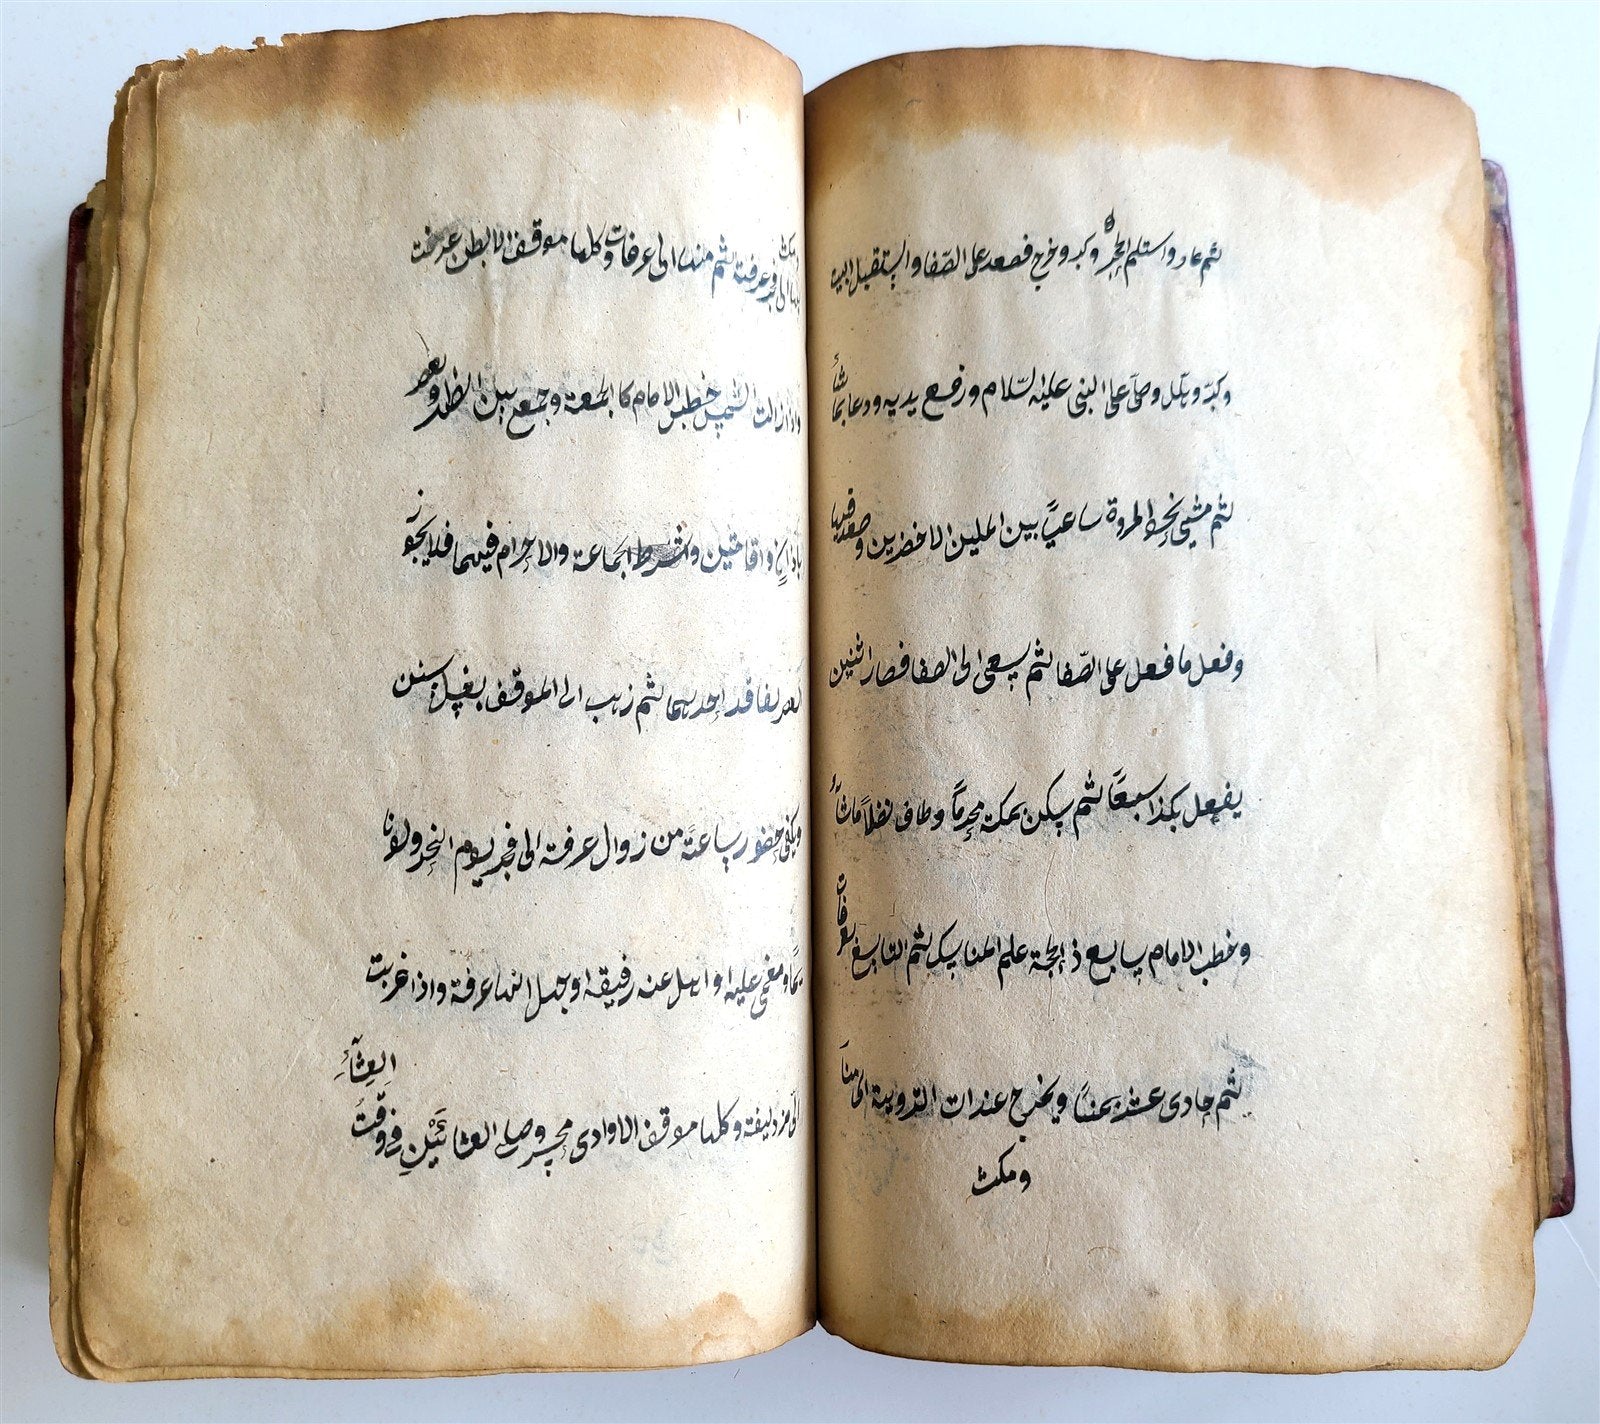 ثم عاد واستلم الحجر وكبر وخرج فصعد على الصفا واستقبل البيت
وكبر وهلل وصلى على النبى عليه السلام ورفع يديه ودعا بما شاء
ثم مشى نحو المروة ساعيًا بين الميلين الاخضرين وصعد فيها
وفعل ما فعل على الصّفا ثم يسعى الى الصفا فصار اثنين
يفعل هكذا سبعًا ثم يسكن بمكة محرمًا وطاف نفلًا ما شاء
وخطب الامام سابع ذى الحجة علم المناسك ثم التاسع بعرفات
ثم حادى عشر بمنًا ويخرج غداة التروية الى منا
ومكث
ومكث بها الى فجر عرفة ثم منها الى عرفات وكلها موقف الا بطن عرنة
واذا زالت الشمس خطب الامام كالجمعة وجمع بين الظهر والعصر
باذان واقامتين وشرط الجماعة والاحرام فيهما فلا يجوز
العصر لفاقد احديهما ثم ذهب الى الموقف بغسل سنن
ويكفى حضور ساعة من زوال عرفة الى فجر يوم النحر ولو نا
ئما ومغمى عليه او اهل عنه رفيقه او جهل انها عرفة واذا غربت
اتى مزدلفة وكلها موقف الا وادى محسر وصلى العشائين فى وقت
العشاء